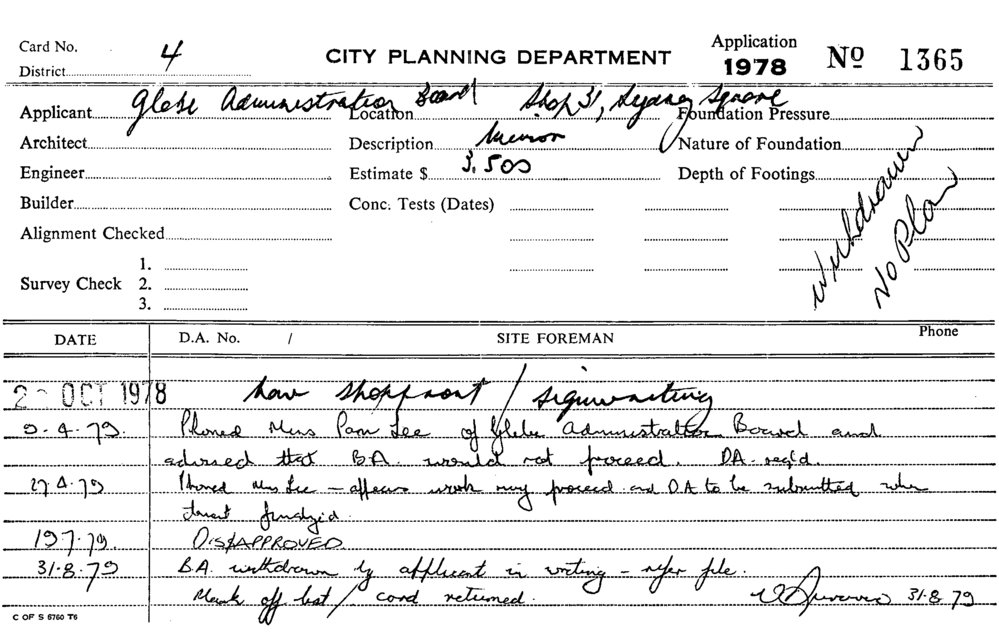 Card No. 4
District
CITY PLANNING DEPARTMENT
Application
1978
Nº 1365
Applicant Glebe Administration Board
Location Shop 31, Sydney Square
Foundation Pressure
Architect
Description Minor
Nature of Foundation
Engineer
Estimate $ 3,500
Depth of Footings
Builder
Conc. Tests (Dates)
Withdrawn
No Plan
Alignment Checked
Survey Check
1.
2.
3.
DATE
D.A. No. /
SITE FOREMAN
Phone
OCT 1978 New shopfront / signwriting
9.4.79. Phoned Miss Pam Lee of Glebe Administration Board and
advised that B.A. would not proceed. DA. req'd.
27.4.79 Phoned Miss Lee – appears work may proceed and DA to be submitted when
tenant
19.7.79. DISAPPROVED
31.8.79 B.A. withdrawn by applicant in writing – refer file.
Mark off list / card returned.
31.8.79
C OF S 6760 T6